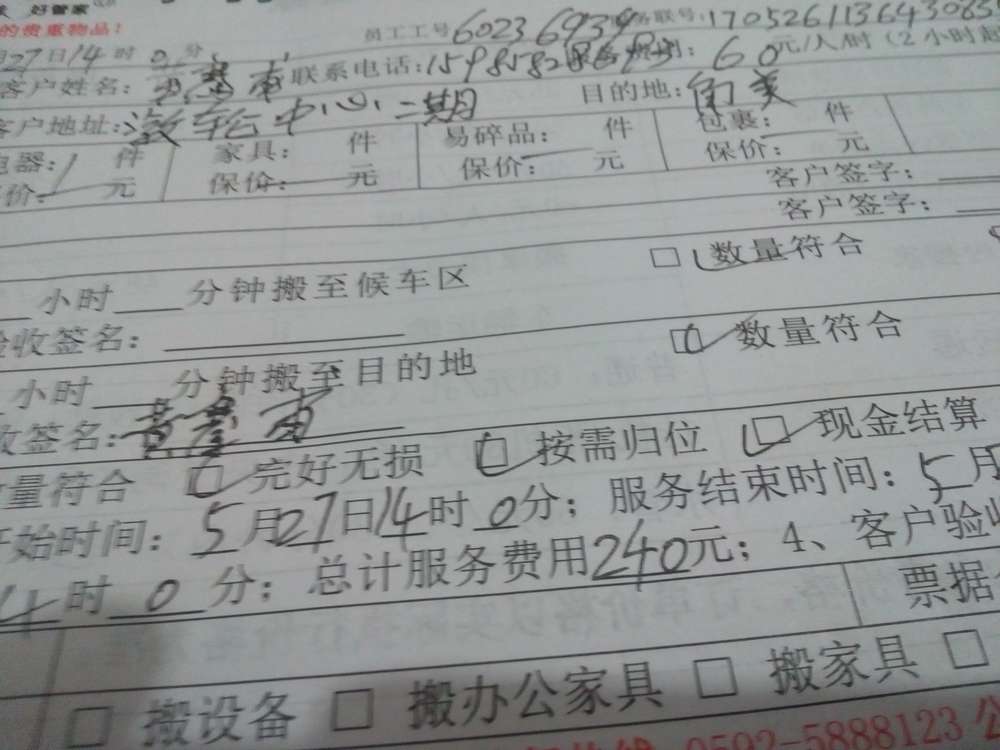 好管家
的贵重物品!
员工工号60236939 联号:17052611364308
月27日14时0分
客户姓名: 联系电话:1598582 60元/人/时(2小时起
客户地址:海轮中心二期 目的地:角美
电器:1件 家具: 件 易碎品: 件 包裹: 件
保价: 元 保价: 元 保价: 元 保价: 元
客户签字:
客户签字:
小时 分钟搬至候车区 □数量符合
验收签名:
小时 分钟搬至目的地 □数量符合
收签名:黄 南
数量符合 □完好无损 □按需归位 □现金结算
开始时间:5月27日14时0分;服务结束时间:5月
时0分;总计服务费用240元;4、客户验收
票据
□搬设备 □搬办公家具 □搬家具 □
0592-5888123